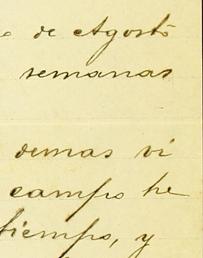 de Agosto
semanas
demas vi
campo he
tiempo, y